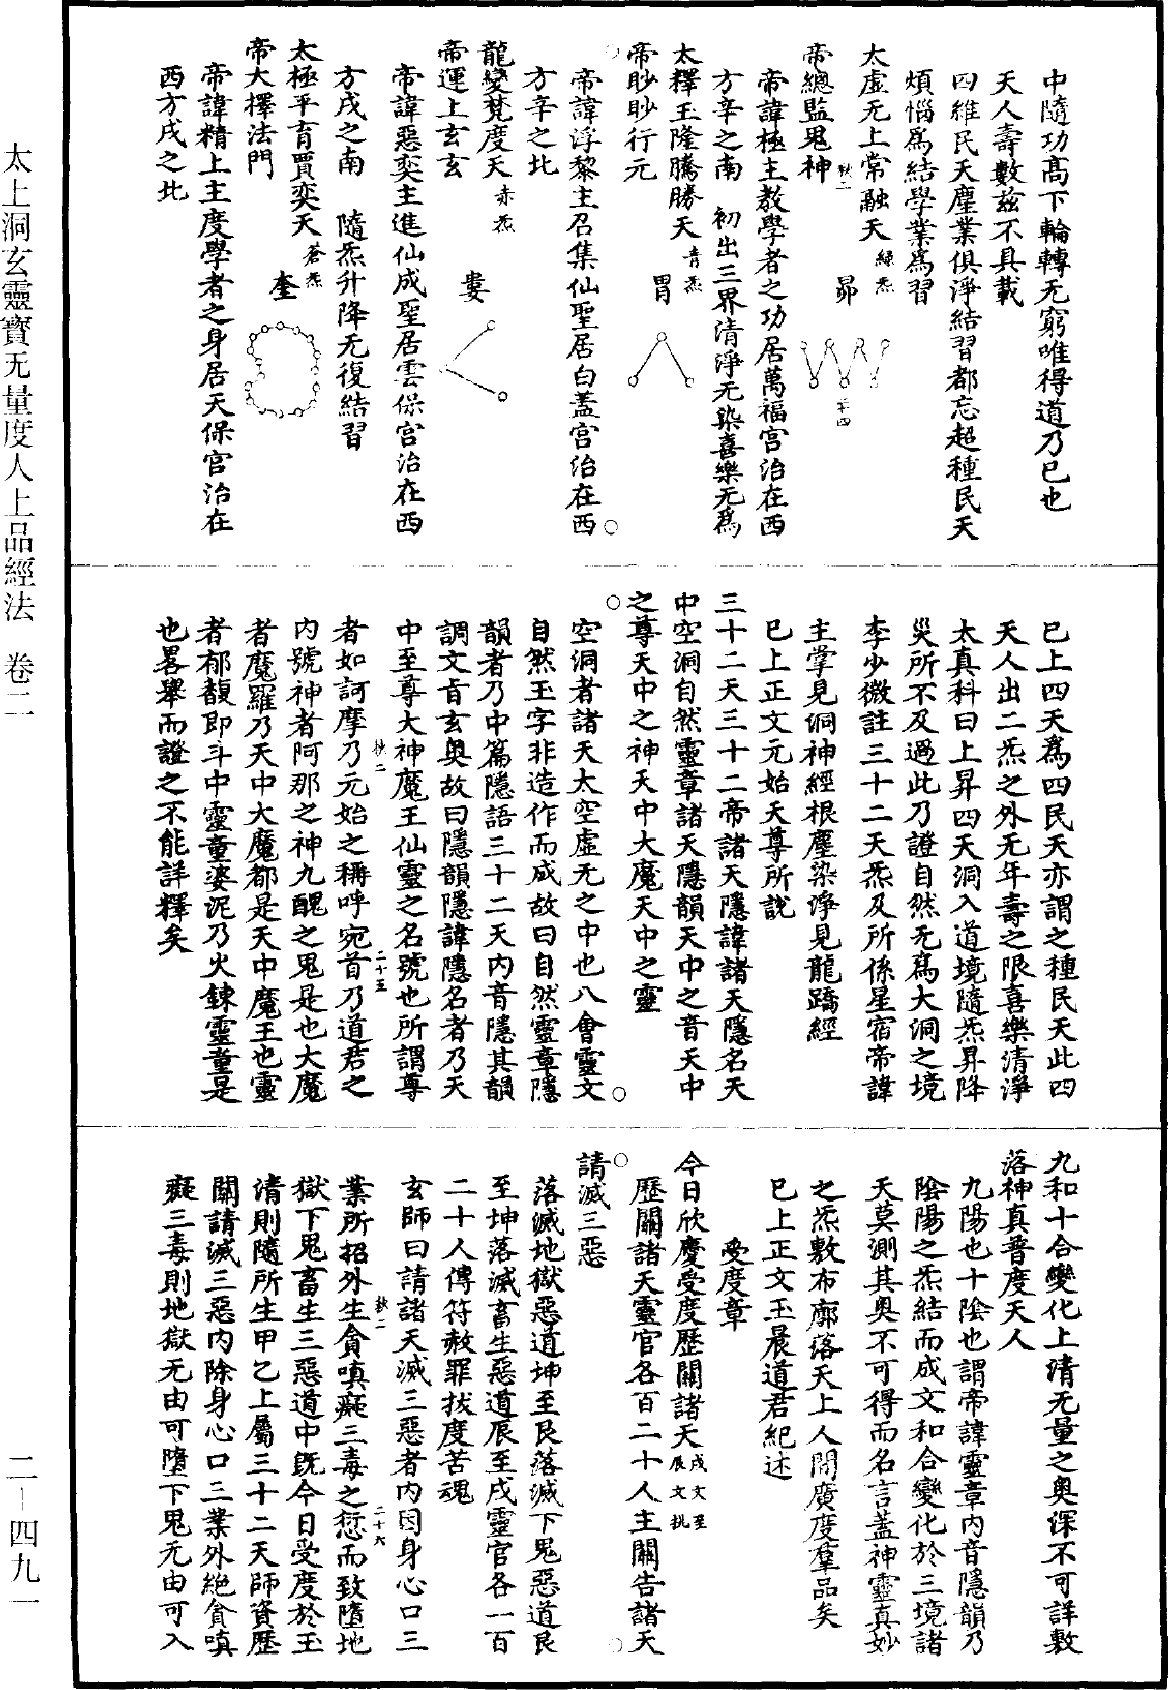 中隨功高下輪轉无窮唯得道乃已也
天人壽數茲不具載
四維民天塵業俱淨結習都忘超種民天
煩惱爲結學業爲習
太虛无上常融天 綠炁 昴
帝總監鬼神 敕二 二十四
帝諱極主教學者之功居萬福宮治在西
方辛之南 初出三界清淨无染喜樂无爲
太釋玉隆騰勝天 青炁 胃
帝眇眇行元
帝諱浮黎主召集仙聖居白蓋宮治在西
方辛之北
龍變梵度天 赤炁 婁
帝運上玄玄
帝諱惡奕主進仙成聖居雲保宮治在西
方戌之南 隨炁升降无復結習
太極平育賈奕天 蒼炁 奎
帝大擇法門
帝諱精上主度學者之身居天保宮治在
西方戌之北
已上四天爲四民天亦謂之種民天此四
天人出二炁之外无年壽之限喜樂清淨
太真科曰上昇四天洞入道境隨炁昇降
災所不及過此乃證自然无爲大洞之境
李少微註三十二天炁及所係星宿帝諱
主掌見洞神經根塵染淨見龍蹻經
已上正文元始天尊所說
三十二天三十二帝諸天隱諱諸天隱名天
中空洞自然靈章諸天隱韻天中之音天中
之尊天中之神天中大魔天中之靈
空洞者諸天太空虛无之中也八會靈文
自然玉字非造作而成故曰自然靈章隱
韻者乃中篇隱語三十二天內音隱其韻
調文音玄奧故曰隱韻隱諱隱名者乃天
中至尊大神魔王仙靈之名號也所謂尊
敕二 二十五
者如訶摩乃元始之稱呼宛首乃道君之
內號神者阿那之神九醜之鬼是也大魔
者魔羅乃天中大魔都是天中魔王也靈
者郁馥即斗中靈童婆泥乃火鍊靈童是
也畧舉而證之不能詳釋矣
九和十合變化上清无量之奧深不可詳敷
落神真普度天人
九陽也十陰也謂帝諱靈章內音隱韻乃
陰陽之炁結而成文和合變化於三境諸
天莫測其奧不可得而名言蓋神靈真妙
之炁敷布廓落天上人間廣度羣品矣
已上正文玉晨道君紀述
受度章
今日欣慶受度歷關諸天 戌文至辰文批
歷關諸天靈官各百二十人主關告諸天
請滅三惡
落滅地獄惡道坤至艮落滅下鬼惡道艮
至坤落滅畜生惡道辰至戌靈官各一百
二十人傳符赦罪拔度苦魂
玄師曰請諸天滅三惡者內因身心口三
敕二 二十六
業所招外生貪嗔癡三毒之愆而致墮地
獄下鬼畜生三惡道中旣今日受度於玉
清則隨所生甲乙上屬三十二天師資歷
關請滅三惡內除身心口三業外絕貪嗔
癡三毒則地獄无由可墮下鬼无由可入
太上洞玄靈寶无量度人上品經法 卷二 二-四九一